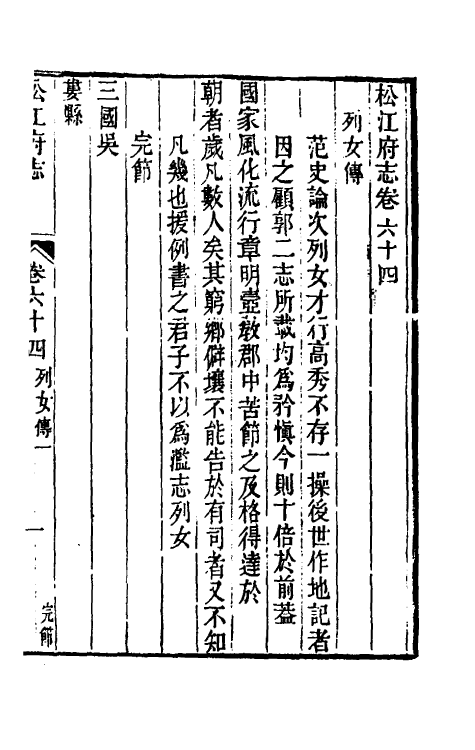 松江府志卷六十四
列女傳
范史論次列女才行高秀不存一操後世作地記者
因之顧郭二志所載均爲矜慎今則十倍於前葢
國家風化流行章明壼教郡中苦節之及格得達於
朝者歲凡數人矣其窮鄉僻壤不能告於有司者又不知
凡幾也援例書之君子不以爲濫志列女
完節
三國吳
婁縣
松江府志
卷六十四列女傳一
一
完節